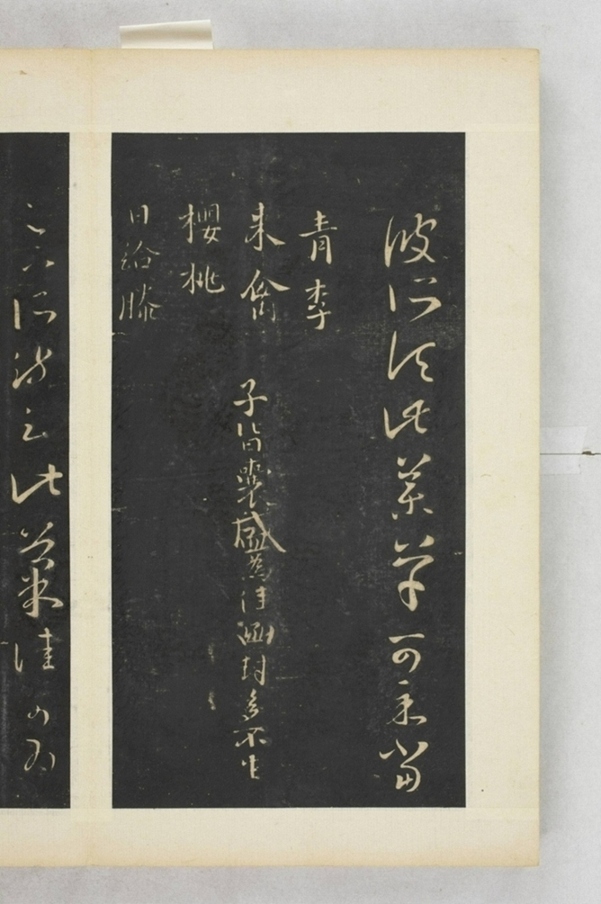 彼所須此藥草可示當
青李
来禽 子皆囊盛為佳函封多不生
櫻桃
日給滕
足下所疏云此菓佳可為